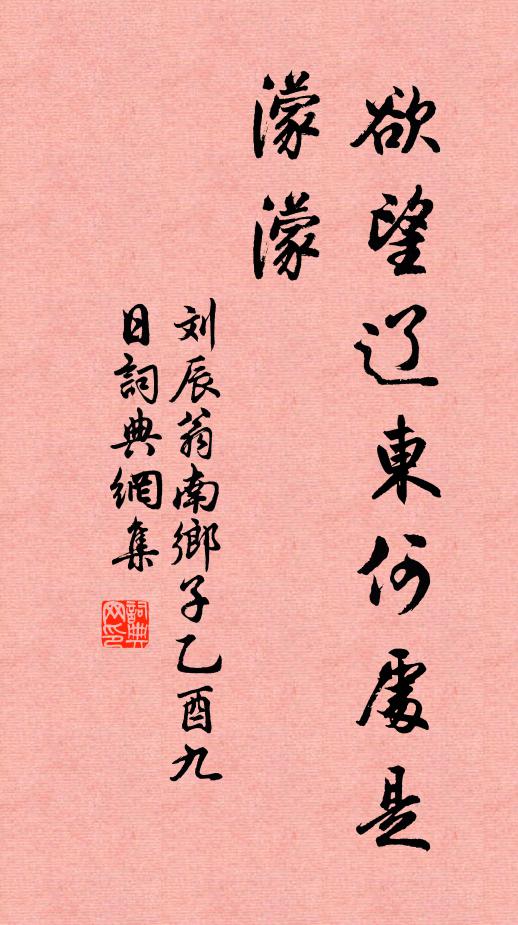 欲望辽東何處是
濛濛
刘辰翁南鄉子乙酉九
日詞典網集
詞典
网印